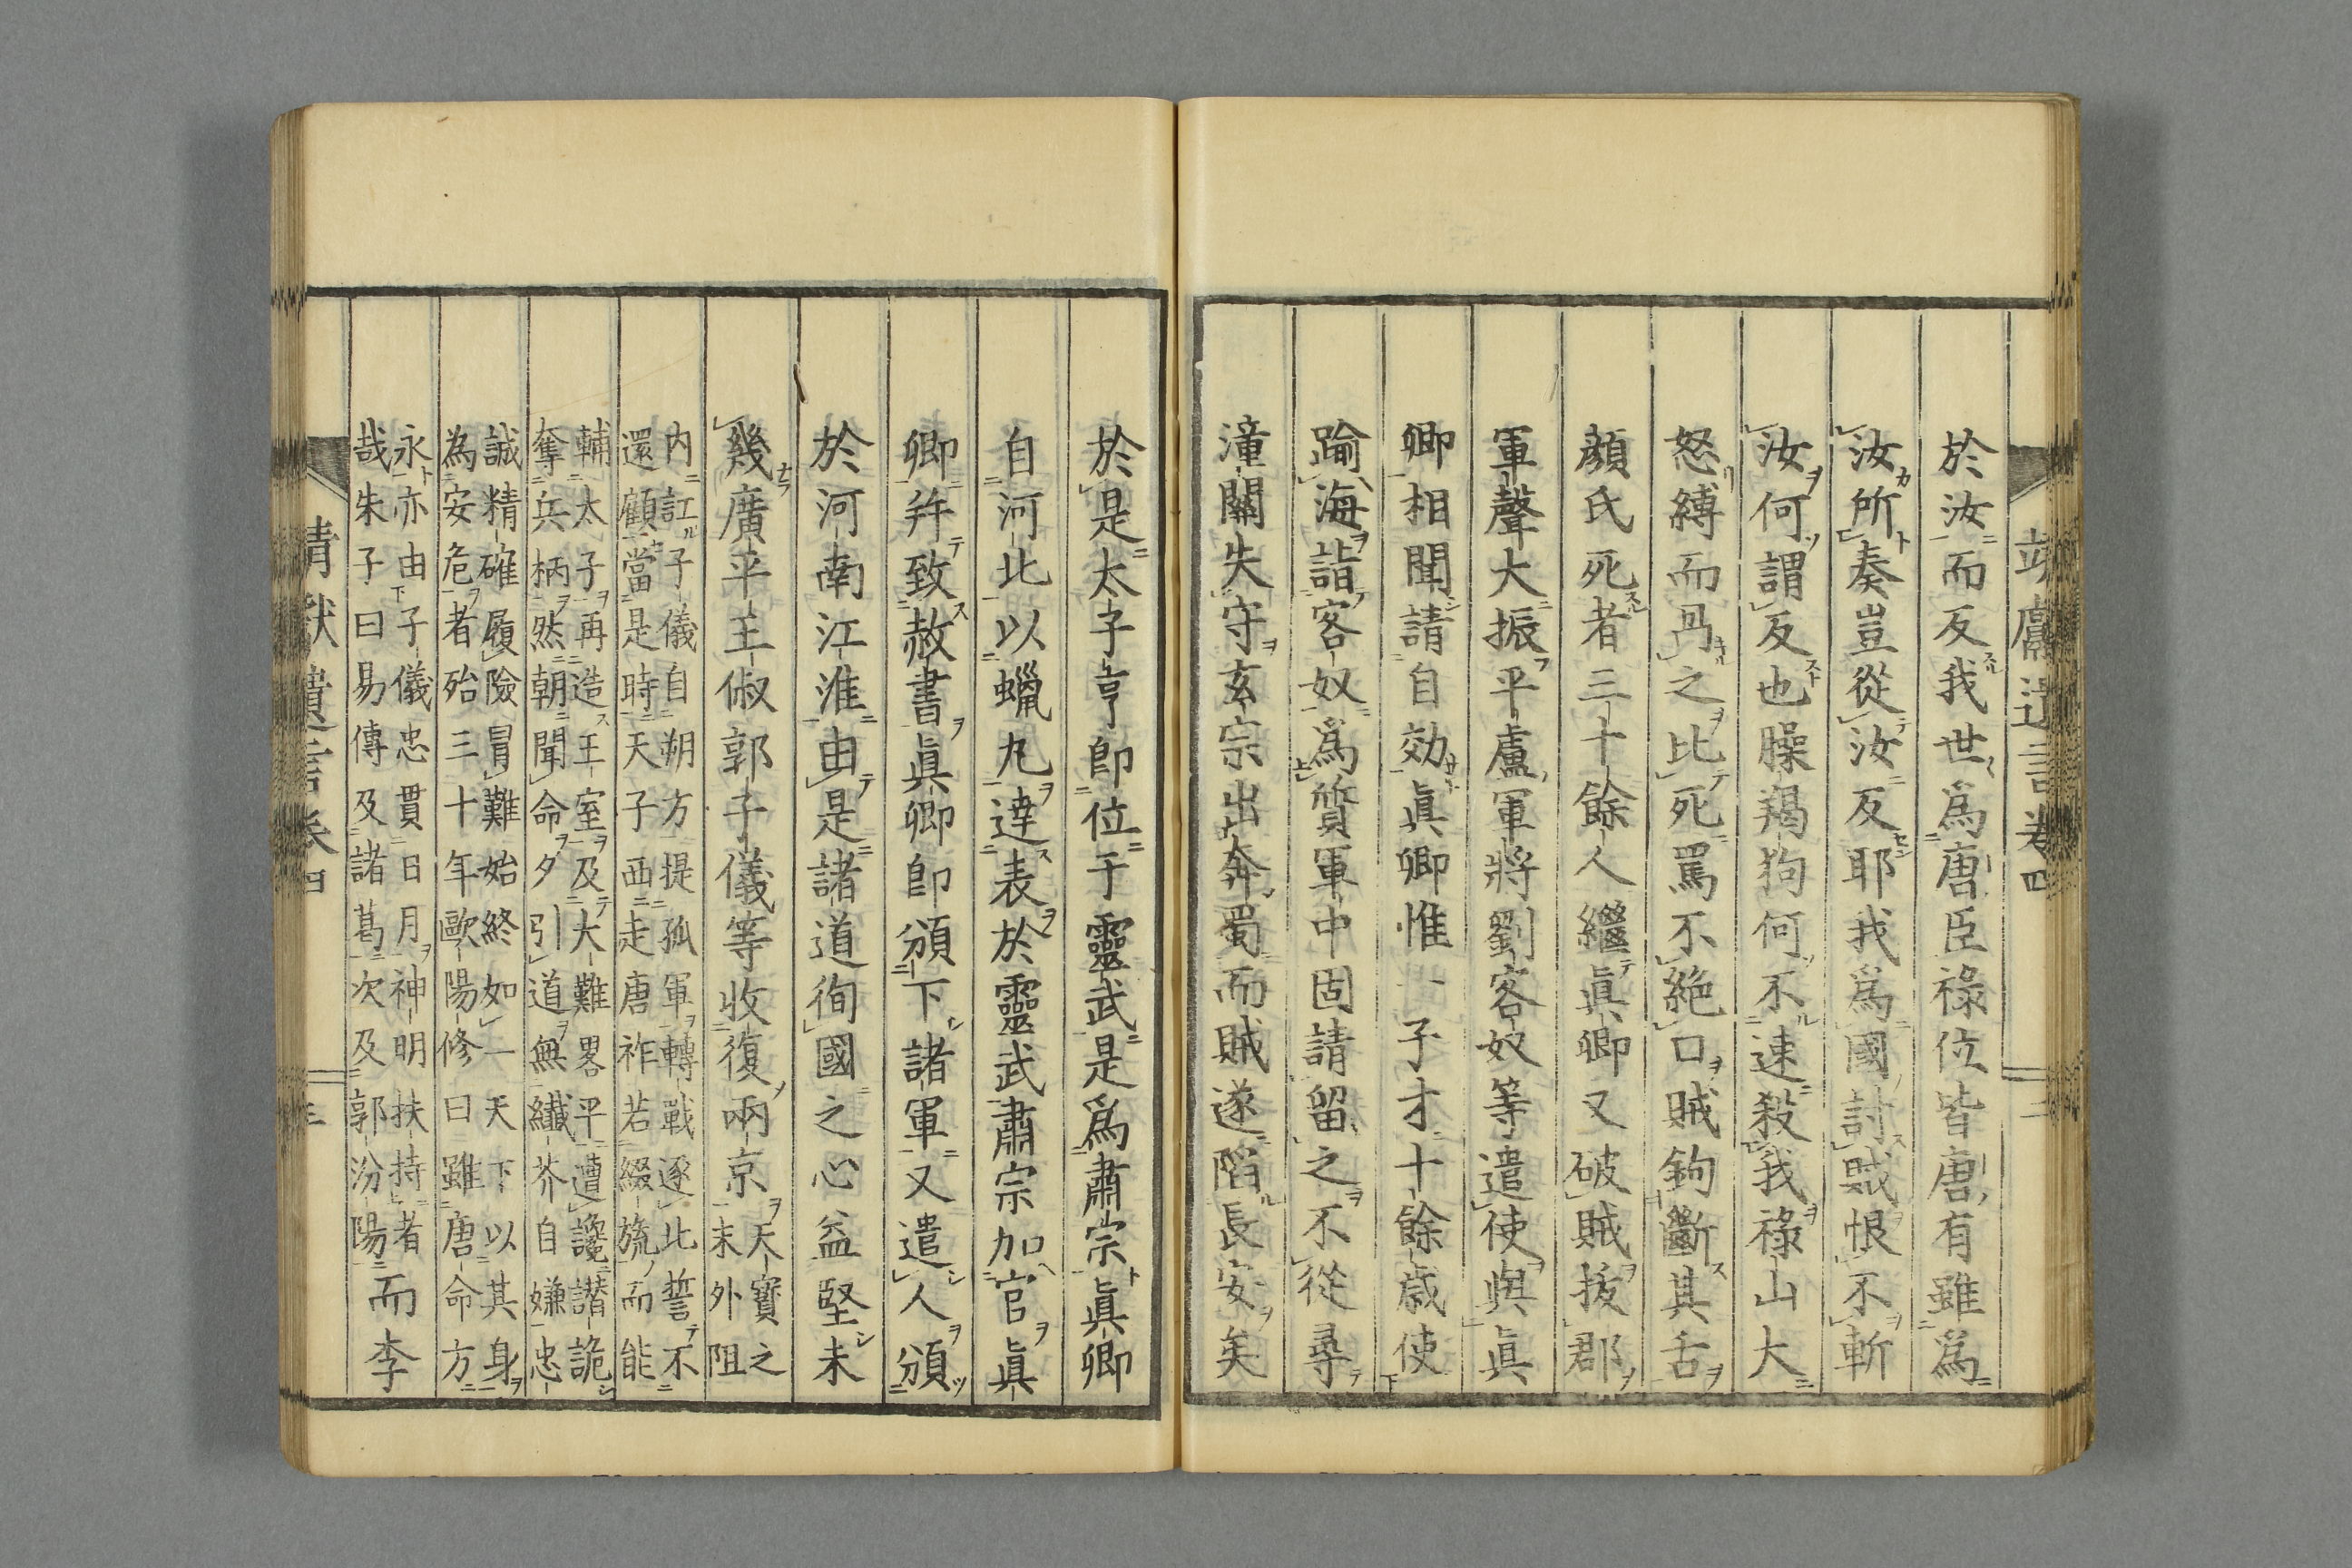 靖獻遺言卷四
二
於汝而反我世爲唐臣祿位皆唐有雖爲
汝所奏豈從汝反耶我爲國討賊恨不斬
汝何謂反也臊羯狗何不速殺我祿山大
怒縛而冎之比死罵不絕口賊鉤斷其舌
顏氏死者三十餘人繼眞卿又破賊拔郡
軍聲大振平盧軍將劉客奴等遣使與眞
卿相聞請自効眞卿惟一子才十餘歲使
踰海詣客奴爲質軍中固請留之不從尋
潼關失守玄宗出奔蜀而賊遂陷長安矣
於是太子亨卽位于靈武是爲肅宗眞卿
自河北以蠟丸達表於靈武肅宗加官眞
卿幷致赦書眞卿卽頒下諸軍又遣人頒
於河南江淮由是諸道徇國之心益堅未
幾廣平王俶郭子儀等收復兩京天寶之
末外阻
內訌子儀自朔方提孤軍轉戰逐北誓不
還顧當是時天子西走唐祚若綴旒而能
輔太子再造王室及大難畧平遭讒譖詭
奪兵柄然朝聞命夕引道無纎芥自嫌忠
誠精確履險冒難始終如一天下以其身
為安危者殆三十年歐陽修曰雖唐命方
永亦由子儀忠貫日月神明扶持者
哉朱子曰易傳及諸葛次及郭汾陽而李
靖獻遺言卷四
三